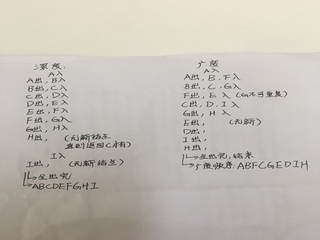 深度:
A入
A出,B入
B出,C入
C出,D入
D出,E入
E出,F入
F出,G入
G出,H入
H出, (无新结点
直到返回C才有)
I入
I出, (无新结点)
↳全出完
↳ABCDEFGHI
广度
A入
A出,B.F入
B出,C.G入
F出,E入 (G不再重复)
C出,D.I入
G出,H入
E出, (无新)
D出,
I出,
H出,
↳全出完,结束
↳广度顺序:ABFCGEDIH